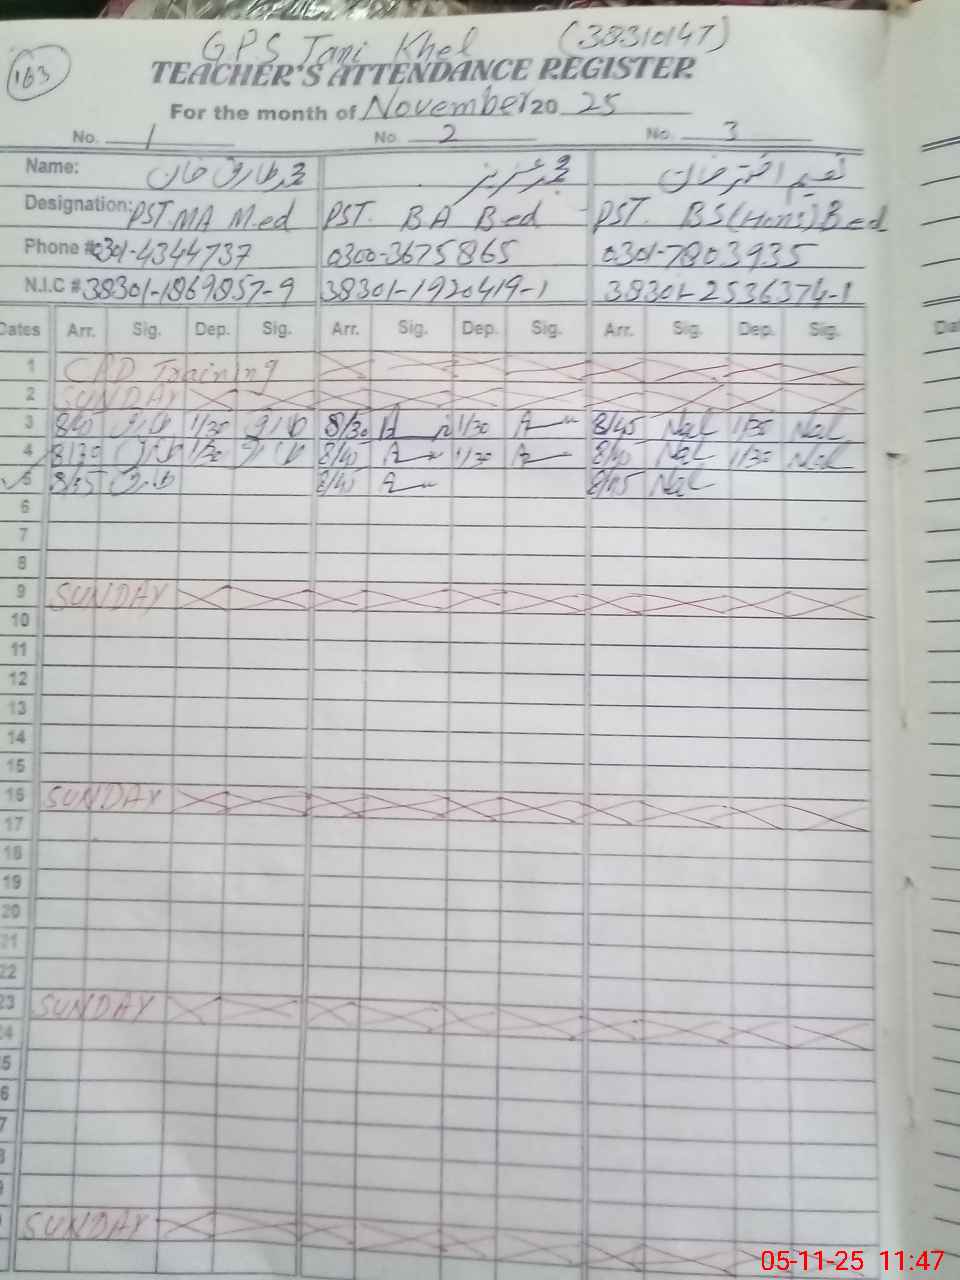 163
GPS Tani Khel (38310147)
TEACHER'S ATTENDANCE REGISTER
For the month of November 20 25
No. 1 No. 2 No. 3
Name: محمد طارق خان محمد عزیز نعیم اختر خان
Designation: PST MA M.ed PST. BA Bed PST. BS(Hons) Bed
Phone # 0301-4344737 0300-3675865 0301-7803935
N.I.C # 38301-1869857-9 38301-1920419-1 38301-2536374-1
Dates Arr. Sig. Dep. Sig. Arr. Sig. Dep. Sig. Arr. Sig. Dep. Sig.
1 CPD Training
2 SUNDAY
3 8/40 1/30 8/30 1/30 8/45 1/30
4 8/30 1/30 8/40 1/30 8/40 1/30
5 8/45 8/45 8/45
6
7
8
9 SUNDAY
10
11
12
13
14
15
16 SUNDAY
17
18
19
20
21
22
23 SUNDAY
24
5
6
7
SUNDAY
05-11-25 11:47